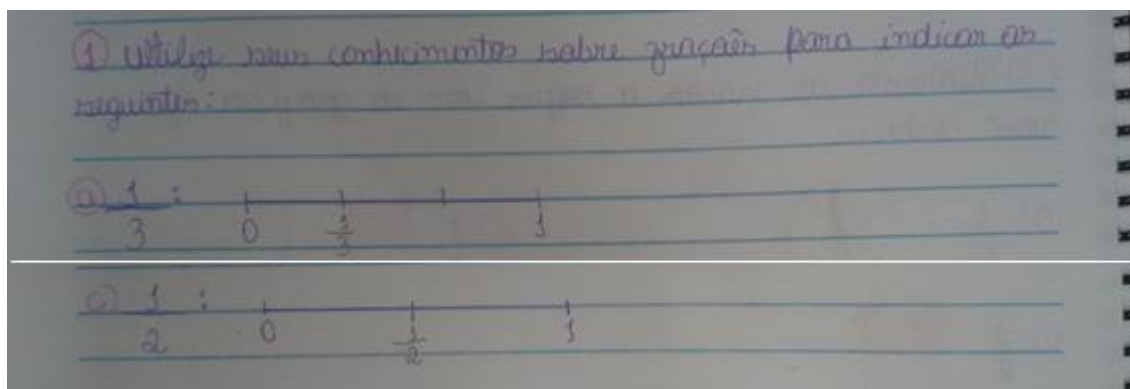 ① Utilize seus conhecimentos sobre frações para indicar as
seguintes:
ⓐ 1/3 : 0 1/3 1
ⓒ 1/2 : 0 1/2 1